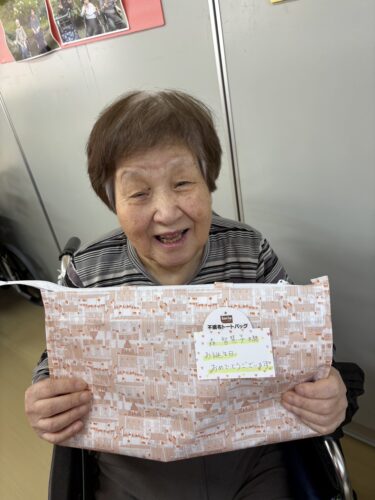 不織布トートバッグ
様
お誕生日
おめでとうございます